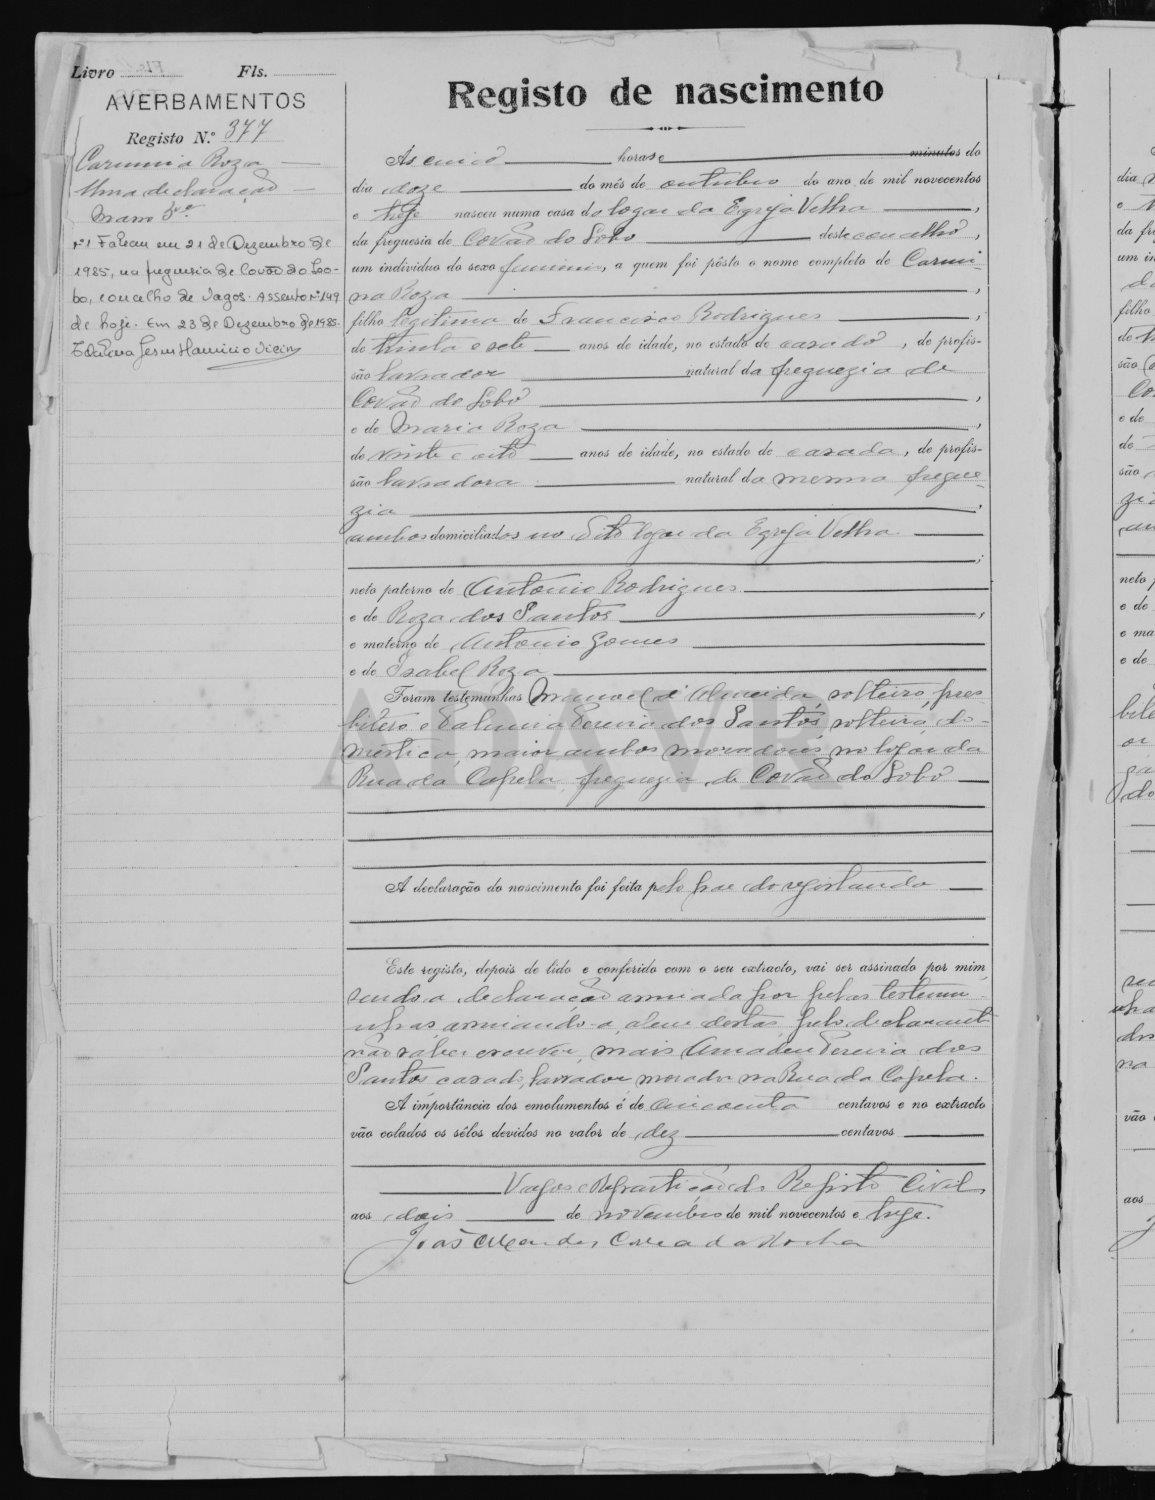 Livro Fls.
AVERBAMENTOS
Registo N.º 377
Carmina Roza
Uma declaração
Nº1 Faleceu em 21 de Dezembro de
1985, na freguesia de Covão do Lo-
bo, concelho de Vagos. Assento nº 149
de hoje. Em 23 de Dezembro de 1985.
Registo de nascimento
Ás cinco horas e minutos do
dia doze do mês de outubro do ano de mil novecentos
e treze nasceu numa casa do logar da Egreja Velha,
da freguesia de Covão do Lobo deste concelho,
um indivíduo do sexo feminino, a quem foi pôsto o nome completo de Carmi-
na Roza,
filho legitimo de Francisco Rodrigues,
de trinta e sete anos de idade, no estado de casado, de profis-
são lavrador natural da freguezia de
Covão do Lobo,
e de Maria Roza,
de vinte e oito anos de idade, no estado de casada, de profis-
são lavradora natural da mesma fregue-
zia,
ambos domiciliados no dito logar da Egreja Velha
;
neto paterno de Antonio Rodrigues
e de Roza dos Santos,
e materno de Antonio Gomes
e de Isabel Roza
Foram testemunhas Manoel d'Almeida, solteiro, pres
bitero e Palmira Pereira dos Santos, solteira, do-
mestica, maior ambos moradores no logar da
Rua da Capela, freguezia de Covão do Lobo
AAVR
A declaração do nascimento foi feita pelo pae do registando
Este registo, depois de lido e conferido com o seu extracto, vai ser assinado por mim,
sendo a declaração assinada por pelas testemu-
nhas, assinando-a, alem destas, pelo declarante
não saber escrever, mais Amadeu Pereira dos
Santos casado, lavrador morador na Rua da Capela.
A importância dos emolumentos é de cincoenta centavos e no extracto
vão colados os sêlos devidos no valor de dez centavos
Vagos e Repartição do Registo Civil,
aos dois de novembro de mil novecentos e treze.
João Correa da Rocha